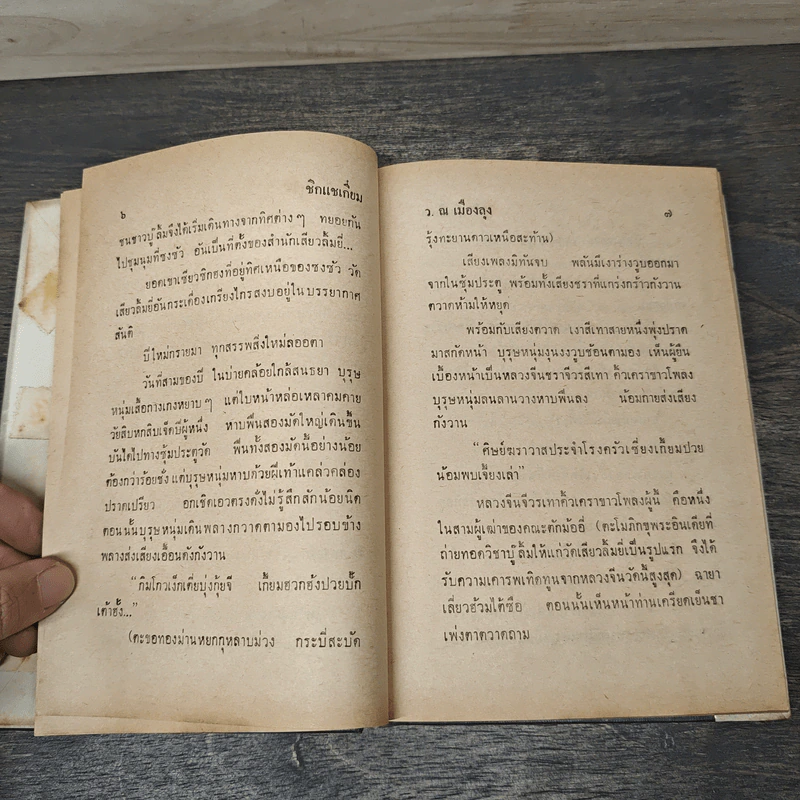 ๖
ชิกแชเกี่ยม
ชนชาวบู๊ลิ้มจึงได้เริ่มเดินทางจากทิศต่าง ๆ ทยอยกัน
ไปชุมนุมที่ซงซัว อันเป็นที่ตั้งของสำนักเสียวลิ้มยี่...
ยอดเขาเซียวซิกฮงที่อยู่ทิศเหนือของซงซัว วัด
เสียวลิ้มยี่อันกระเดื่องเกรียงไกรสงบอยู่ในบรรยากาศ
สันติ
ปีใหม่กรายมา ทุกสรรพสิ่งใหม่ลออตา
วันที่สามของปี ในบ่ายคล้อยใกล้สนธยา บุรุษ
หนุ่มเสื้อกางเกงหยาบ ๆ แต่ใบหน้าหล่อเหลาคมคาย
วัยสิบหกสิบเจ็ดปีผู้หนึ่ง หาบฟืนสองมัดใหญ่เดินขึ้น
บันไดไปทางซุ้มประตูวัด ฟืนทั้งสองมัดนี้อย่างน้อย
ต้องกว่าร้อยชั่ง แต่บุรุษหนุ่มหาบด้วยฝีเท้าแคล่วคล่อง
ปราดเปรียว อกเชิดเอวตรงดั่งไม่รู้สึกสักน้อยนิด
ตอนนั้นบุรุษหนุ่มเดินพลางกวาดตามองไปรอบข้าง
พลางส่งเสียงเอื้อนดังกังวาน
“กิมโกวเง็กเตี่ยบุ่งกุ้ยจี เกี้ยมฮวกฮังปวยปั๊ก
เต้าฮั้ง...”
(ตะขอทองม่านหยกกุหลาบม่วง กระบี่สะบัด
ว. ณ เมืองลุง
๗
รุ้งทะยานดาวเหนือสะท้าน)
เสียงเพลงมิทันจบ พลันมีเงาร่างวูบออกมา
จากในซุ้มประตู พร้อมทั้งเสียงชราที่แกร่งกร้าวกังวาน
ตวาดห้ามให้หยุด
พร้อมกับเสียงตวาด เงาสีเทาสายหนึ่งพุ่งปราด
มาสกัดหน้า บุรุษหนุ่มงุนงงวูบช้อนตามอง เห็นผู้ยืน
เบื้องหน้าเป็นหลวงจีนชราจีวรสีเทา คิ้วเคราขาวโพลง
บุรุษหนุ่มลนลานวางหาบฟืนลง น้อมกายส่งเสียง
กังวาน
“ศิษย์ฆราวาสประจำโรงครัวเซี่ยงเกี้ยมปวย
น้อมพบเจี้ยงเล่า”
หลวงจีนจีวรเทาคิ้วเคราขาวโพลงผู้นี้ คือหนึ่ง
ในสามผู้เฒ่าของคณะตักม้ออี่ (ตะโมภิกขุพระอินเดียที่
ถ่ายทอดวิชาบู๊ลิ้มให้แก่วัดเสียวลิ้มยี่เป็นรูปแรก จึงได้
รับความเคารพเทิดทูนจากหลวงจีนวัดนี้สูงสุด) ฉายา
เลี่ยวฮ้วมไต้ซือ ตอนนั้นเห็นหน้าท่านเครียดเย็นชา
เพ่งตาตวาดถาม